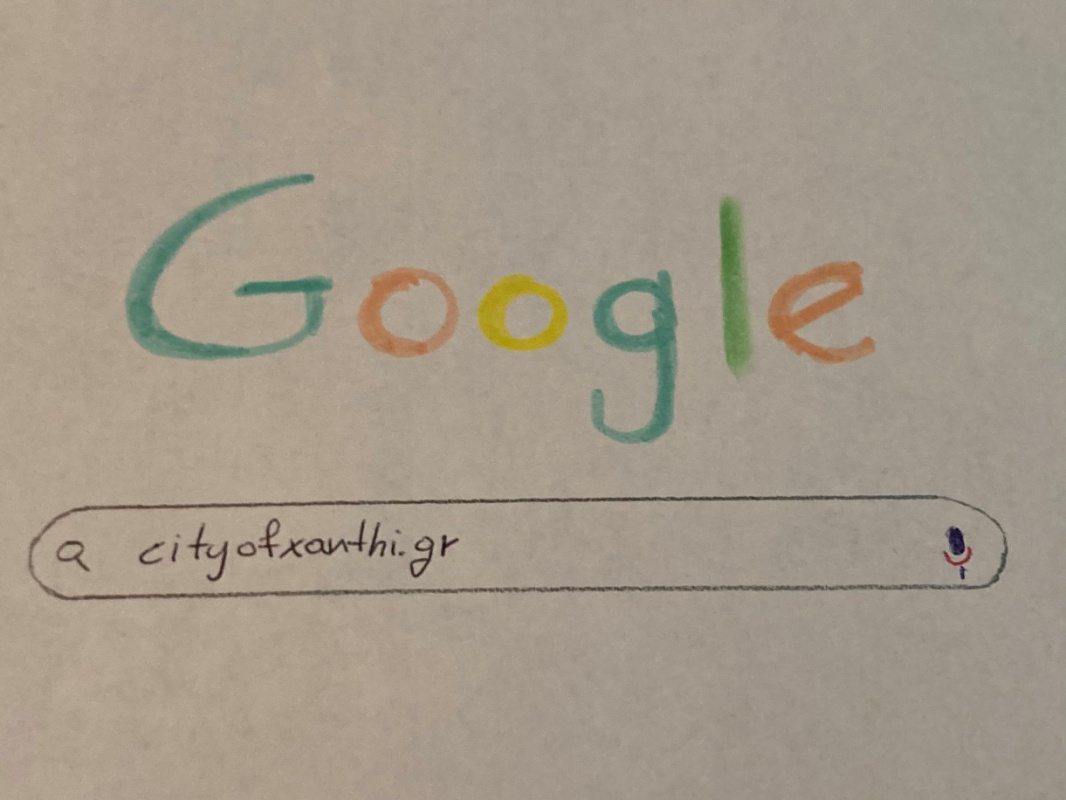 Google
cityofxanthi.gr